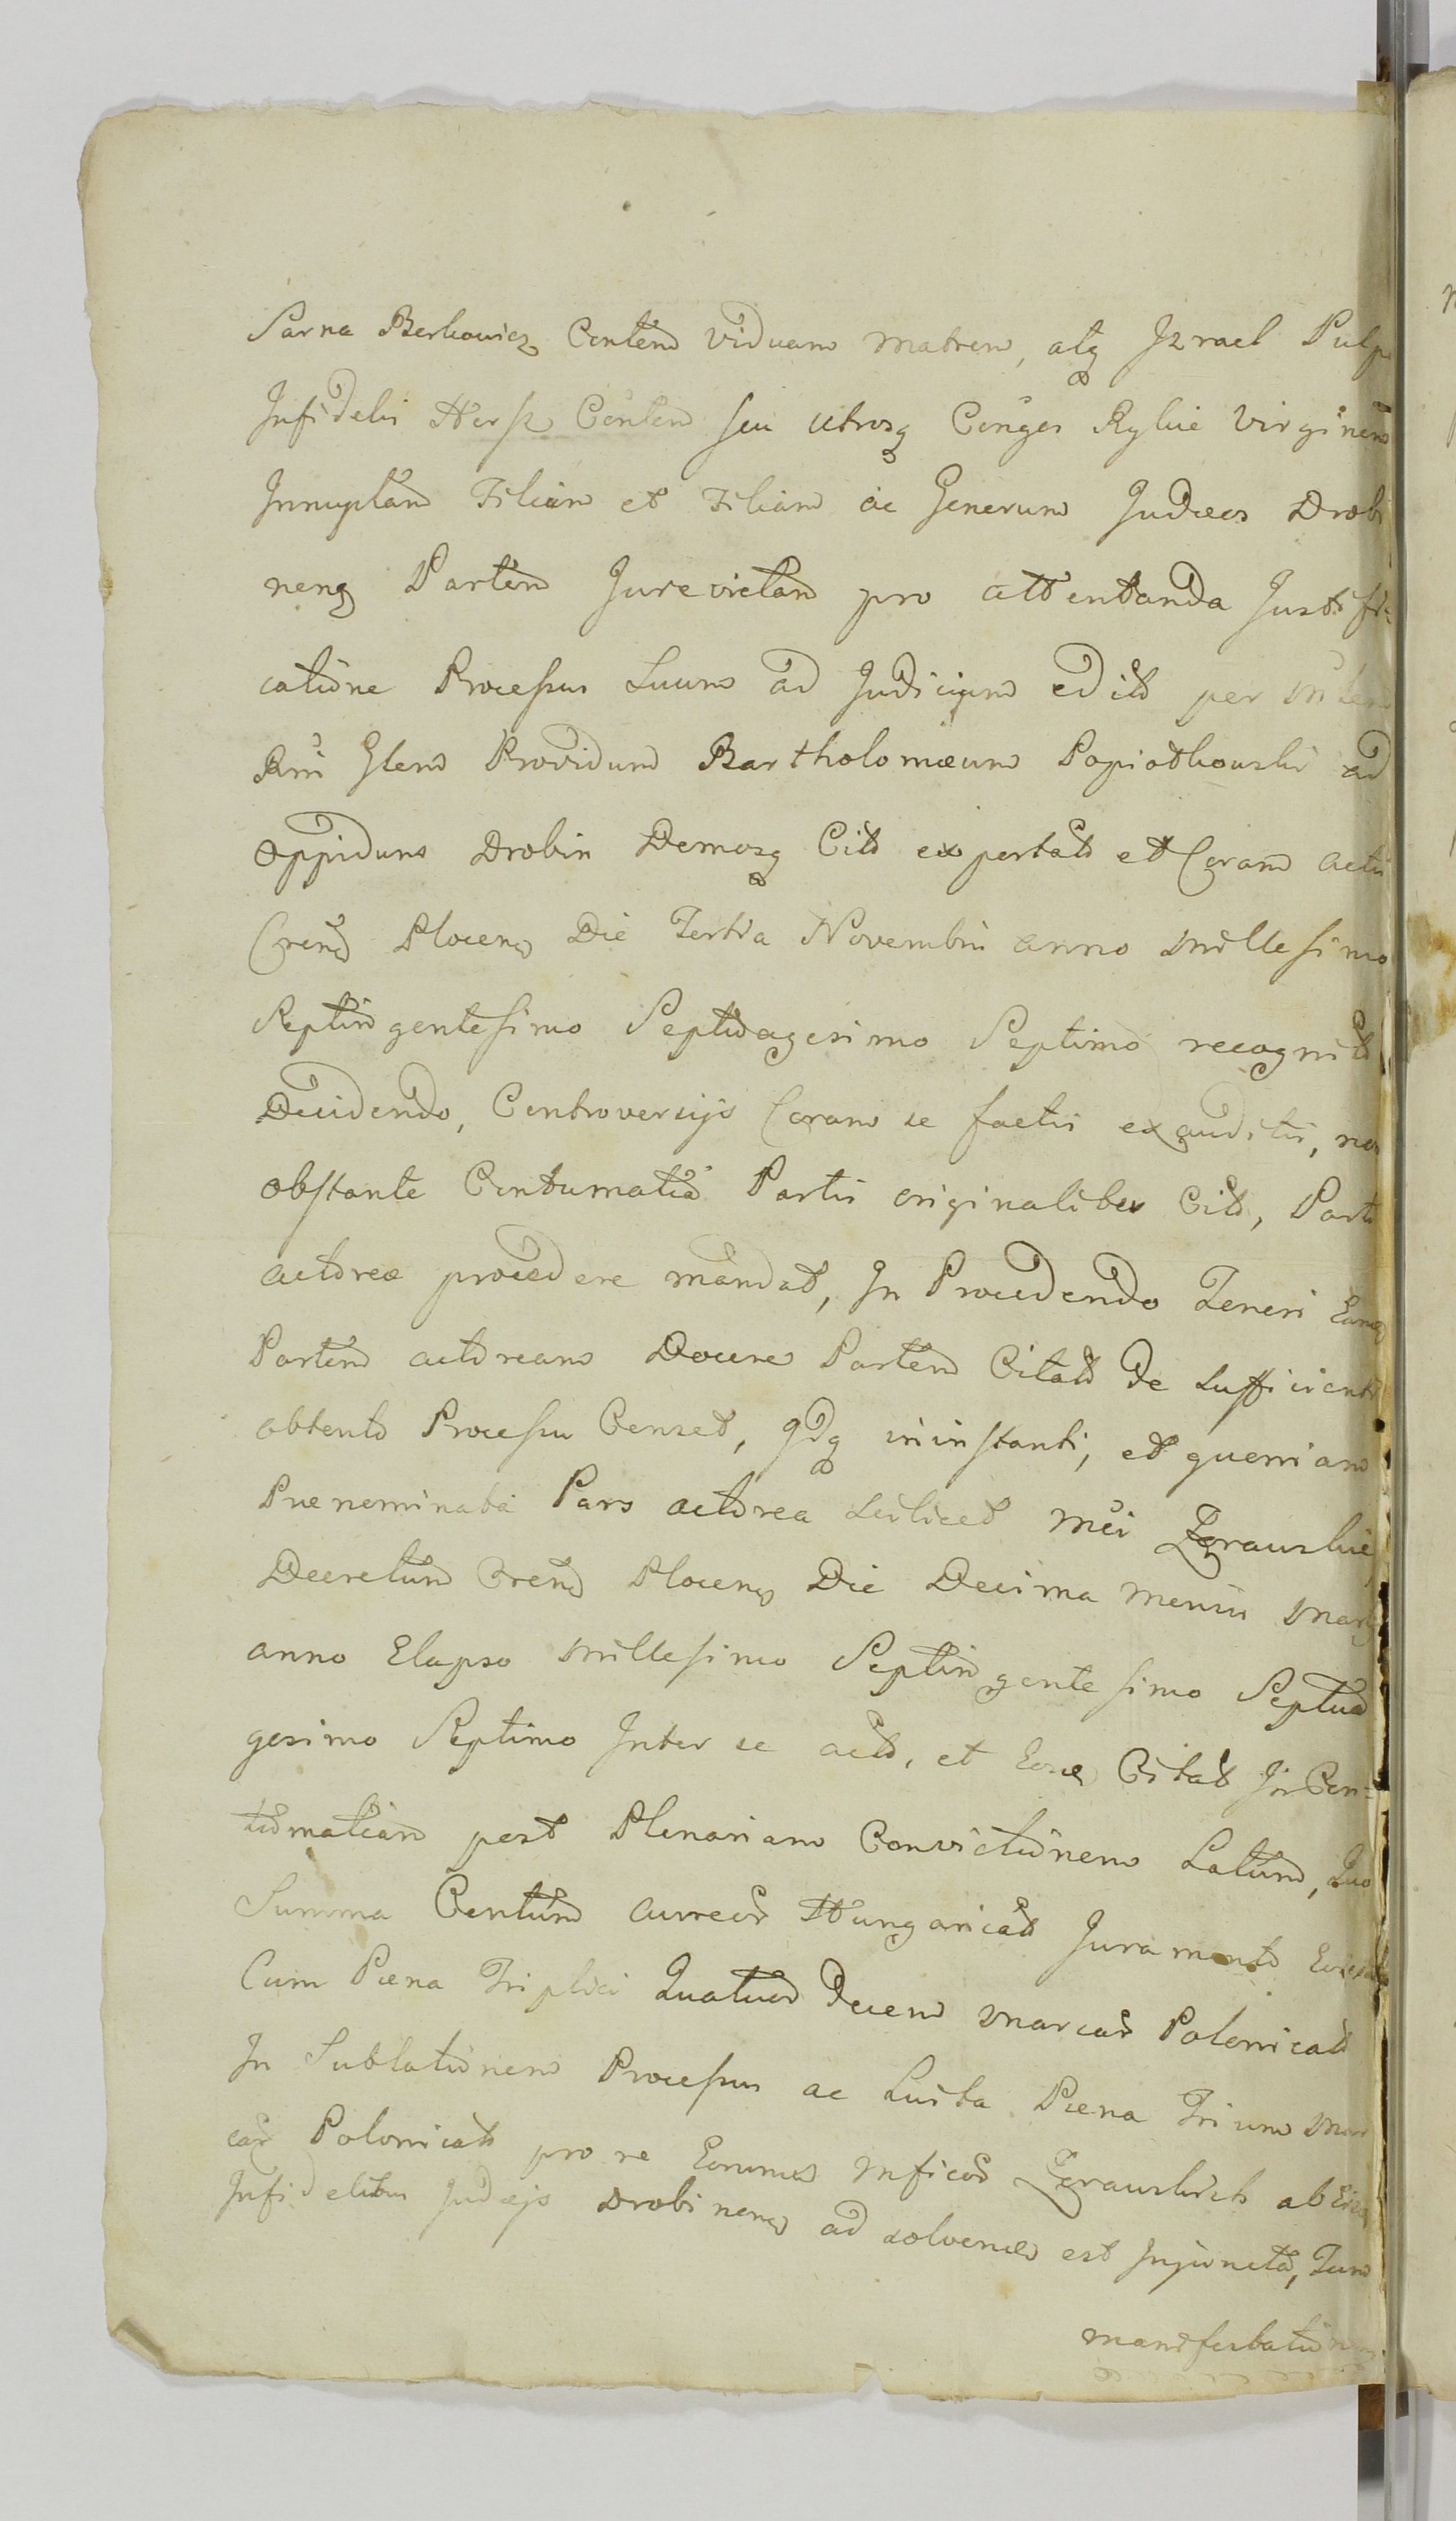 Sarna Berkowicz Contem Viduam Matrem, atq Izrael Pulp
Infidelis Hersz Conten seu utrosq Conges Rylkie Virginem
Innuptam Filiam et Filiam ac Generum Judæos Drobi
nens Partem Jurevictam pro attentanda Justifi-
catione Processus Suum ad Judicium edit per
Rni Glem Providum Bartholomæum Popiołkowski ad
Oppidum Drobin Domosq Cit exportat et Coram actis
Crens Plocens Die Tertia Novembris anno Millesimo
Septingentesimo Septuagesimo Septimo recognit
Decidendo, Controversijs Coram se factis exauditis, non
obstante Contumatia Partis originalibus Cit, Parti
actoreæ procedere mandat, In Procedendo Teneri
Partem actoream Docere Partem Citat de sufficienti
obtento Processu Censet, qdq in instanti, et quoniam
Prænominata Pars actorea scilicet Mci Zgrauskie
Decretum Crens Plocens Die Decima Mensis
anno Elapso Millesimo Septingentesimo Septua
gesimo Septimo Inter se act, et Citat In Con=
tumatiam post Plenariam Convictionem Latum, Quo
Summa Centum aureor Hungarical Juramento
Cum Pæna Triplici Quatuor Decem Marcar Polonical
In Sublationem Processus ac Luita Pæna Trium Mar
car Polonical pro re Eorumd Mficor Zgrauskich ab
Infidelibus Judæjs Drobinens ad solvend est Injuncta, Tum
manifestationem